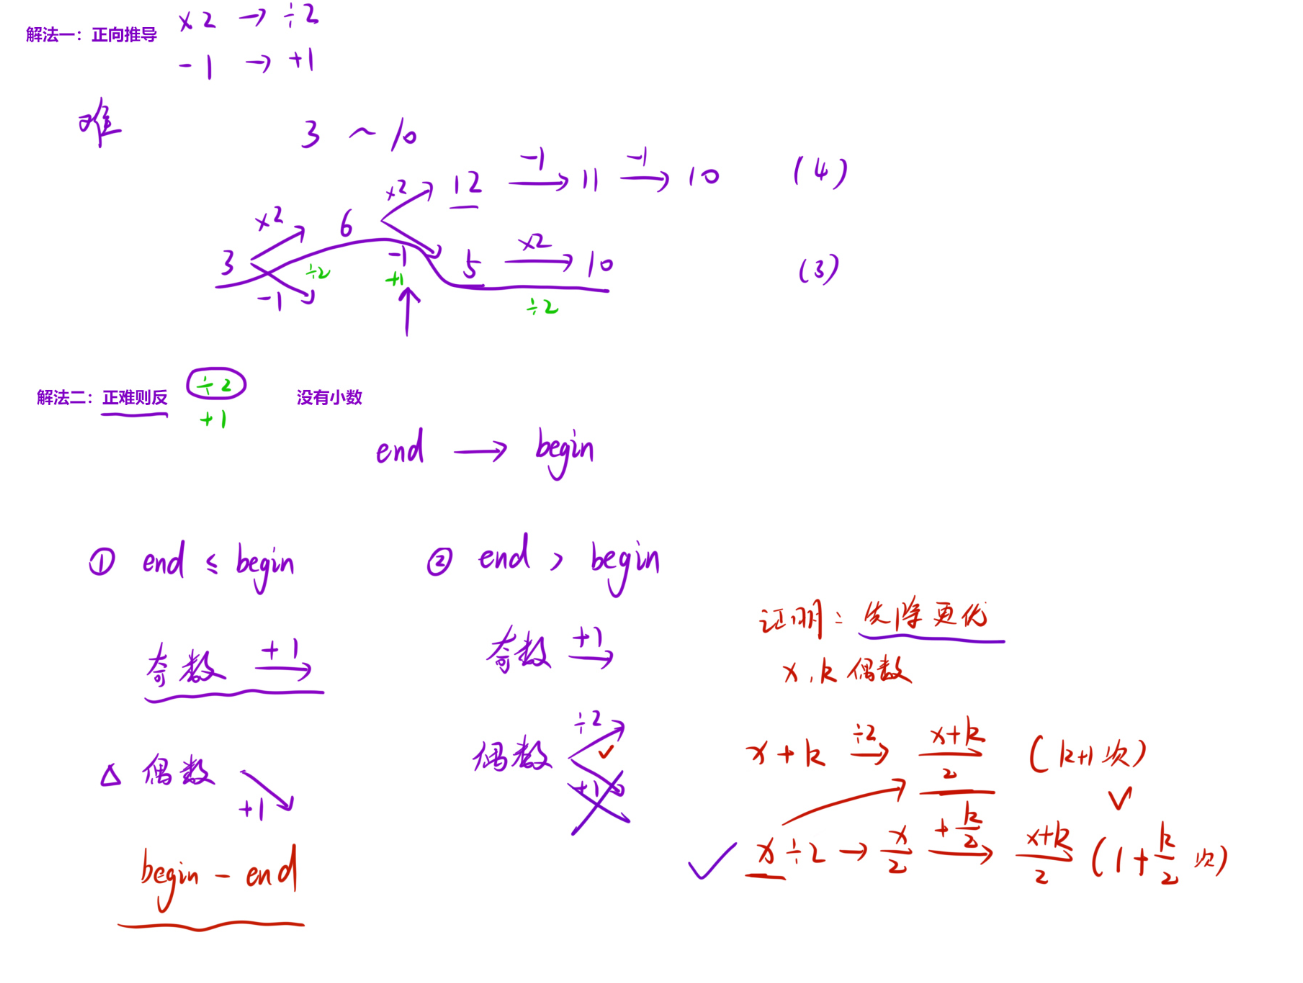 解法一：正向推导 ×2 → ÷2
-1 → +1
难
3 ~ 10
3 ×2 6 ×2 12 -1 11 -1 10 (4)
-1 ÷2 -1 +1 5 ×2 10 ÷2 (3)
解法二：正难则反 ÷2 没有小数
+1
end → begin
① end ≤ begin
奇数 +1
△ 偶数 +1
begin - end
② end > begin
奇数 +1
偶数 ÷2 ✓
+1
证明：先除更优
x, k 偶数
x+k ÷2 → (x+k)/2 (k+1次) ✓
✓ x÷2 → x/2 +k/2 → (x+k)/2 (1+k/2 次)